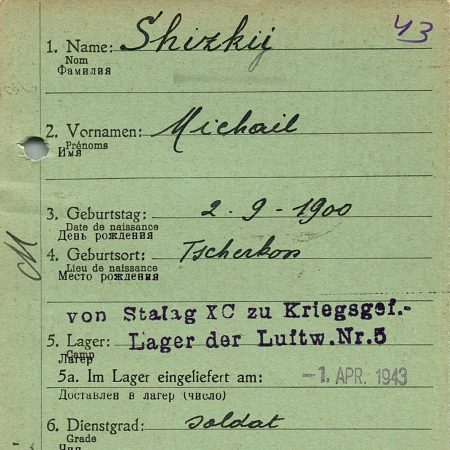 43
1. Name: Shizkij
Nom
Фамилия
2. Vornamen: Michail
Prénoms
Имя
3. Geburtstag: 2. 9 - 1900
Date de naissance
День рождения
4. Geburtsort: Tscherkon
Lieu de naissance
Место рождения
von Stalag XC zu Kriegsgef.-
5. Lager: Lager der Luftw.Nr.5
Camp
Лагер
5a. Im Lager eingeliefert am: -1. APR. 1943
Доставлен в лагер (число)
6. Dienstgrad: Soldat
Grade
Чин
M